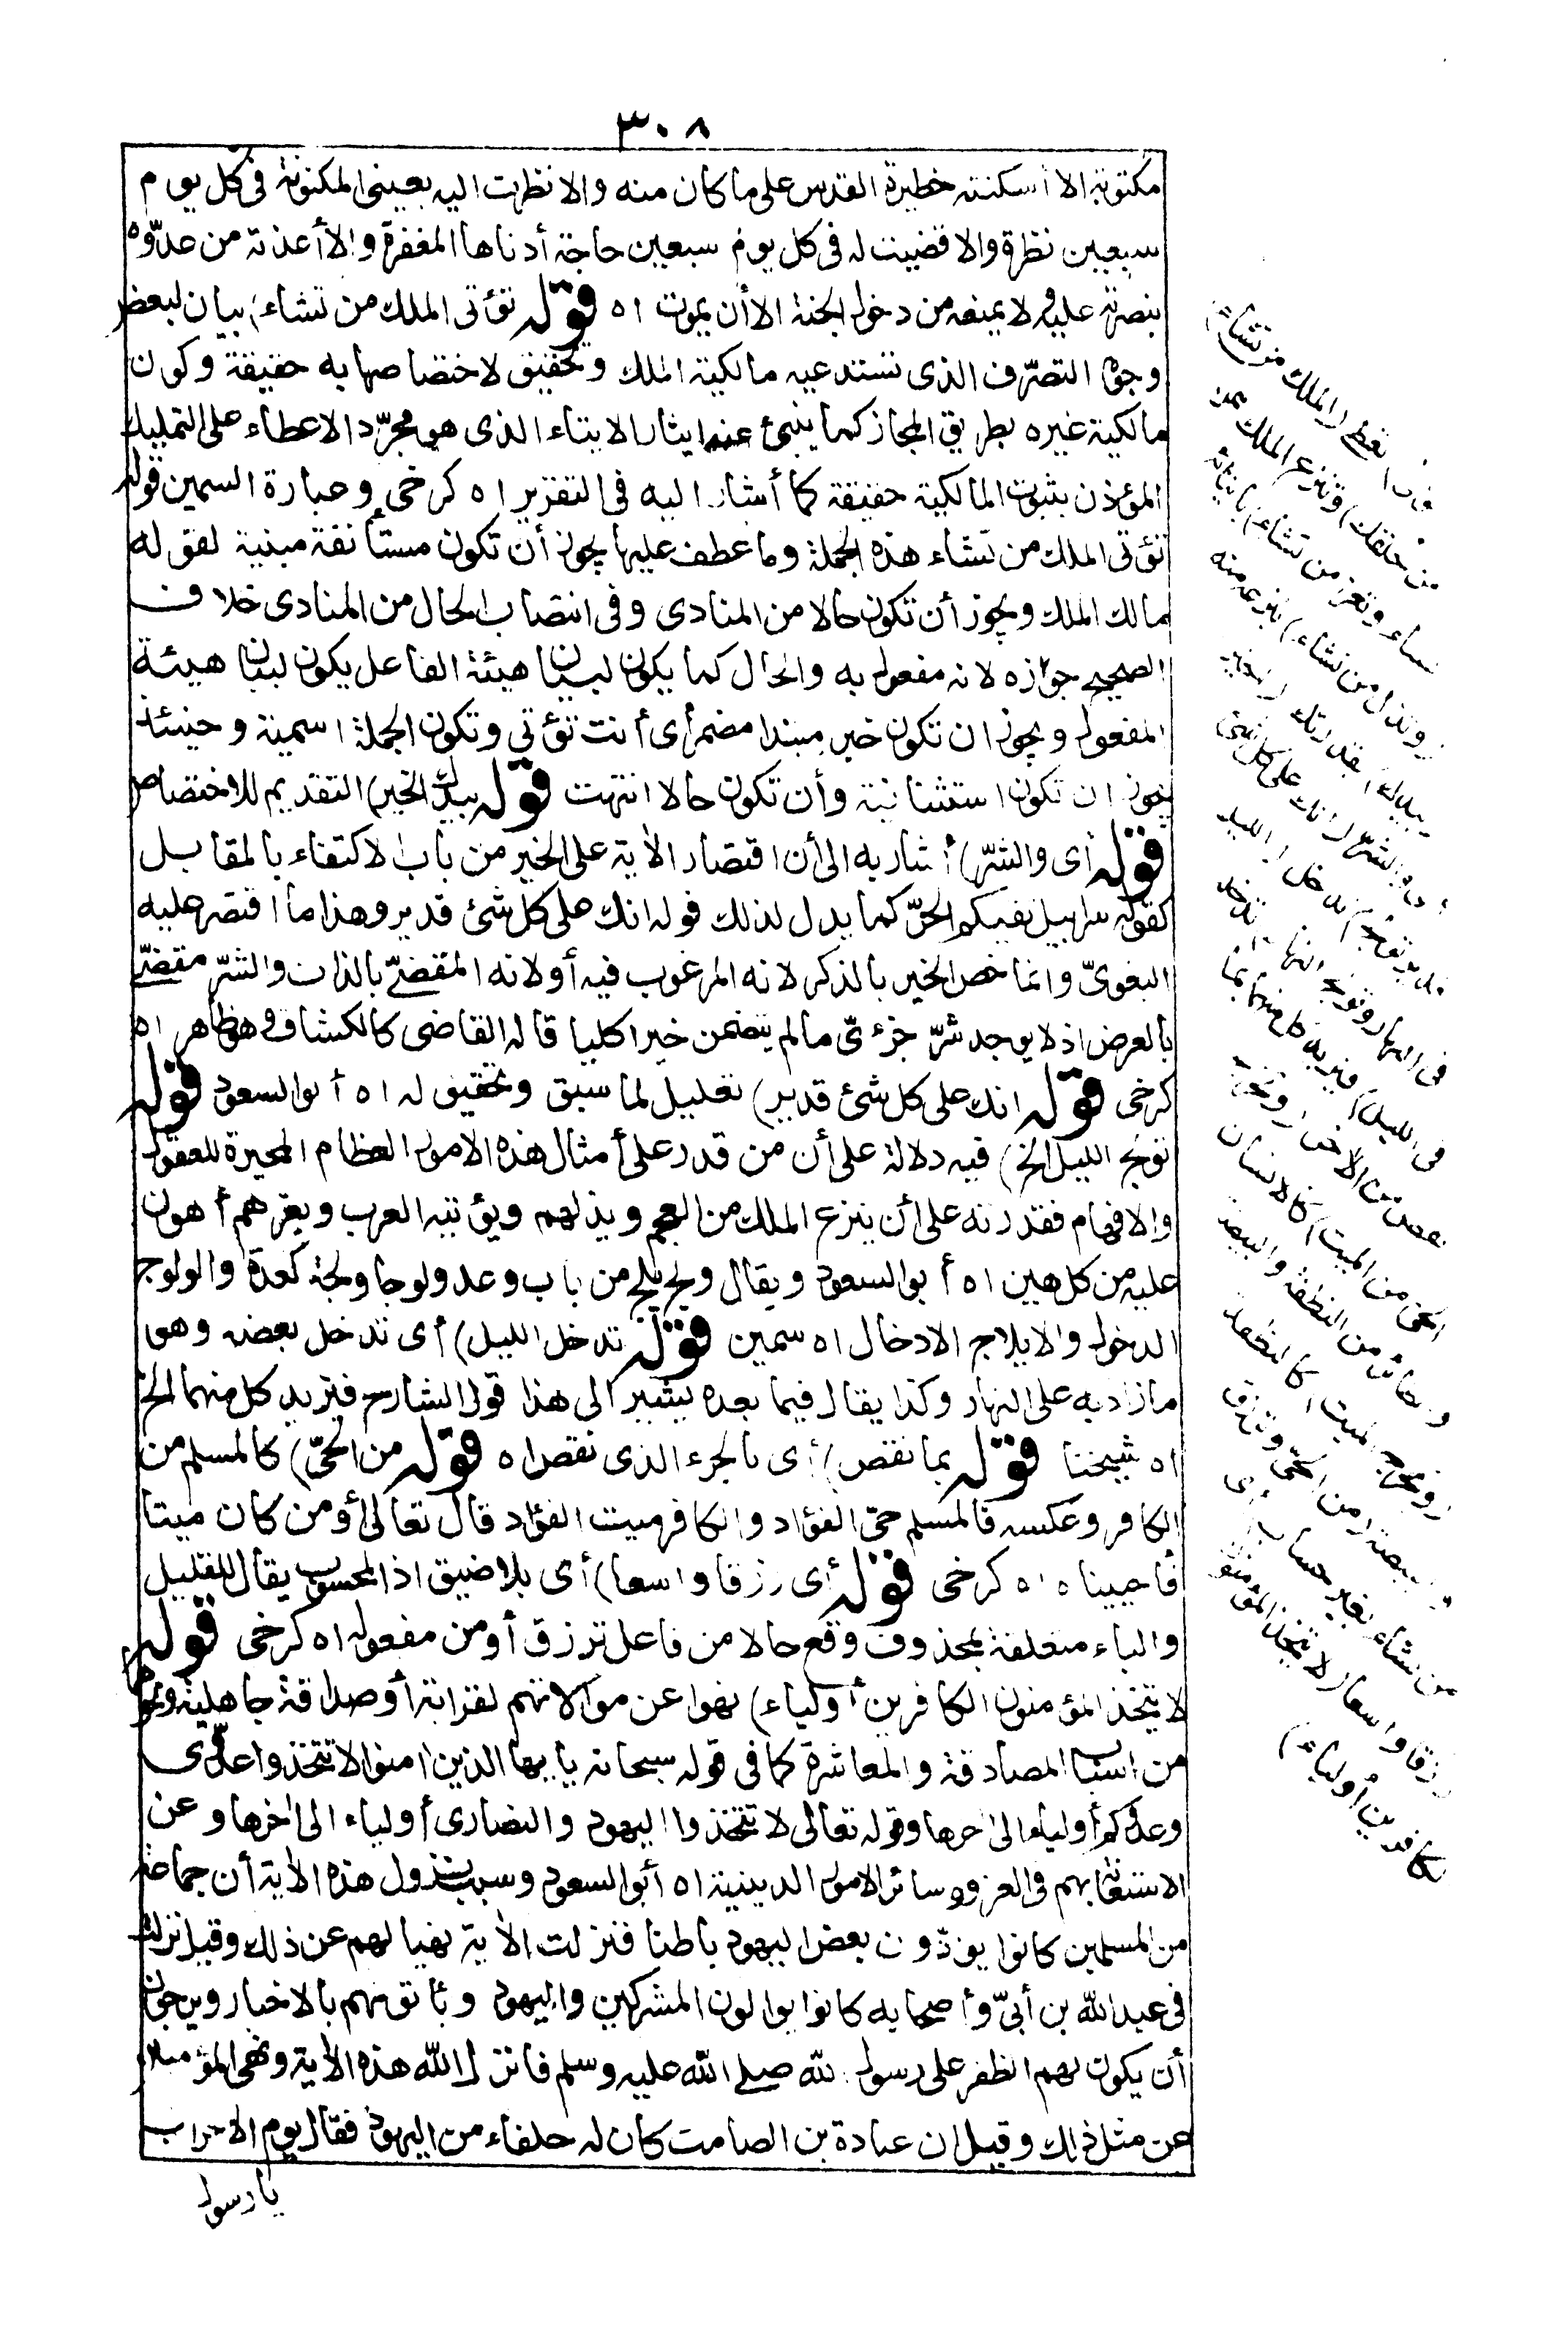 ٣٠٨
مكتوبة الا أسكنته خطيرة القدس على ما كان منه والا نظرت اليه بعينى المكنونة فى كل يوم
سبعين نظرة والا قضيت له فى كل يوم سبعين حاجة أدناها المغفرة والا أعذته من عدّوه
بنصرته عليه ولا يمنعه من دخول الجنة الا أن يموت اه قوله تؤتى الملك من تشاء) بيان لبعض
وجوه التصرّف الذى تستدعيه مالكية الملك وتحقيق لاختصاصها به حقيقة وكون
مالكية غيره بطريق المجاز كما ينبئ عنه ايثار الايتاء الذى هو مجرّد الاعطاء على التمليك
المؤذن بثبوت المالكية حقيقة كما أشار اليه فى التقرير اه كرخى وعبارة السمين قوله
تؤتى الملك من تشاء هذه الجملة وما عطف عليها يجوز أن تكون مستأنفة مبنية لقوله
مالك الملك ويجوز أن تكون حالا من المنادى وفى انتصاب الحال من المنادى خلاف
الصحيح جوازه لانه مفعول به والحال كما يكون لبيان هيئة الفاعل يكون لبيان هيئة
المفعول ويجوز ان تكون خبر مبتدا مضمر أى أنت تؤتي وتكون الجملة اسمية وحينئذ
يجوز ان تكون استئنافية وأن تكون حالا انتهت قوله بيدك الخير) التقديم للاختصاص
قوله أى والشرّ) أشار به الى أن اقتصار الاٰية على الخير من باب الاكتفاء بالمقابل
كقوله سرابيل تقيكم الحرّ كما يدل لذلك قوله انك على كل شئ قدير وهذا ما اقتصر عليه
البغوىّ وانما خص الخير بالذكر لانه المرغوب فيه أو لانه المقضىّ بالذات والشرّ مقضىّ
بالعرض اذ لا يوجد شرّ جزئىّ ما لم يتضمن خيرا كليا قاله القاضى كالكشاف وهو ظاهر اه
كرخى قوله انك على كل شئ قدير) تعليل لما سبق وتحقيق له اه أبو السعود قوله
تولج الليل الخ) فيه دلالة على أن من قدر على أمثال هذه الامور العظام المحيرة للعقول
والافهام فقدرته على أن ينزع الملك من العجم ويذلهم ويؤتيه العرب ويعزهم أهون
عليه من كل هين اه أبو السعود ويقال ولج يلج من باب وعد ولوجا ولجة كعدة والولوج
الدخول والايلاج الادخال اه سمين قوله تدخل الليل) أى تدخل بعضه وهو
ما زاد به على النهار وكذا يقال فيما بعده يشير الى هذا قول الشارح فيزيد كل منهما الخ
اه شيخنا قوله بما نقص) أى بالجزء الذى نقص اه قوله من الحىّ) كالمسلم من
الكافر وعكسه فالمسلم حىّ الفؤاد والكافر ميت الفؤاد قال تعالىٰ أو من كان ميتا
فأحييناه اه كرخى قوله أى رزقا واسعا) أى بلا ضيق اذ المحسوب يقال للقليل
والباء متعلقة بمحذوف وقع حالا من فاعل ترزق أو من مفعوله اه كرخى قوله
لا يتخذ المؤمنون الكافرين أولياء) نهوا عن موالاتهم لقرابة أو صداقة جاهلية ونحوهما
من اسباب المصادقة والمعاشرة كما فى قوله سبحانه يا أيها الذين اٰمنوا لا تتخذوا عدوّى
وعدوّكم أولياء الىٰ اٰخرها وقوله تعالى لا تتخذوا اليهود والنصارى أولياء الى اٰخرها وعن
الاستعانة بهم فى الغزو وسائر الامور الدينية اه أبو السعود وسبب نزول هذه الاٰية أن جماعة
من المسلمين كانوا يوادّون بعض اليهود باطنا فنزلت الاٰية نهيا لهم عن ذلك وقيل نزلت
فى عبد الله بن أبىّ وأصحابه كانوا يوالون المشركين واليهود ويأتونهم بالاخبار ويرجون
أن يكون لهم الظفر على رسول الله صلى الله عليه وسلم فانزل الله هذه الاٰية ونهى المؤمنين
عن مثل ذلك وقيل ان عبادة بن الصامت كان له حلفاء من اليهود فقال يوم الاحزاب
يا رسول
(الملك من تشاء)
من خلقك) وتنزع الملك ممن
تشاء وتعز من تشاء) بايتائه
(وتذل من تشاء) بنزعه منه
(بيدك) بقدرتك (الخير)
أى والشرّ (انك على كل شئ
قدير تولج) تدخل (الليل
فى النهار وتولج النهار) تدخله
(فى الليل) فيزيد كل منهما بما
نقص من الاٰخر (وتخرج
الحى من الميت) كالانسان
والطائر من النطفة والبيضة
(وتخرج الميت) كالنطفة
والبيضة (من الحىّ وترزق
من تشاء بغير حساب) أى
رزقا واسعا (لا يتخذ المؤمنون
الكافرين أولياء)